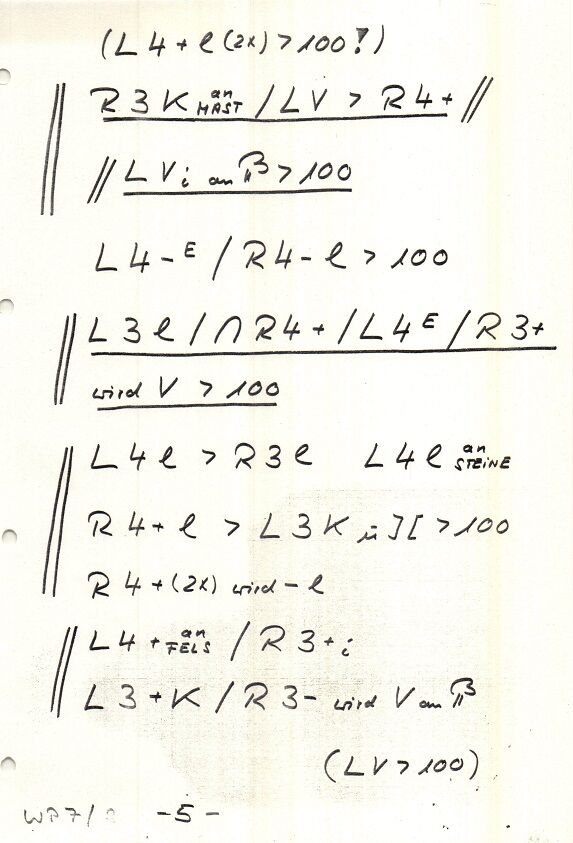 (L4+l(2x)>100!)
R3K an MAST / LV > R4+ //
// LVi an B >100
L4-E / R4-l > 100
L3l / ∩R4+ / L4E / R3+
wird V > 100
L4l > R3l L4l an STEINE
R4+l > L3K ü ][ >100
R4+(2x) wird -l
L4+ an FELS / R3+i
L3+K / R3- wird V an B
(LV>100)
WP7/ -5-